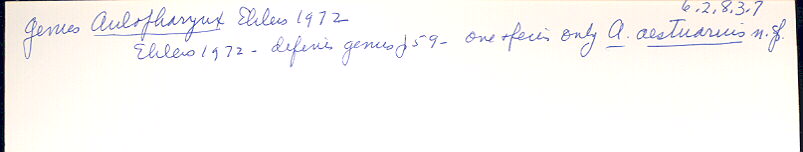 6.2,8,3.7
genus Aulopharynx Ehlers 1972
Ehlers 1972 - defines genus p59 - one species only A. aestuarius n.sp.